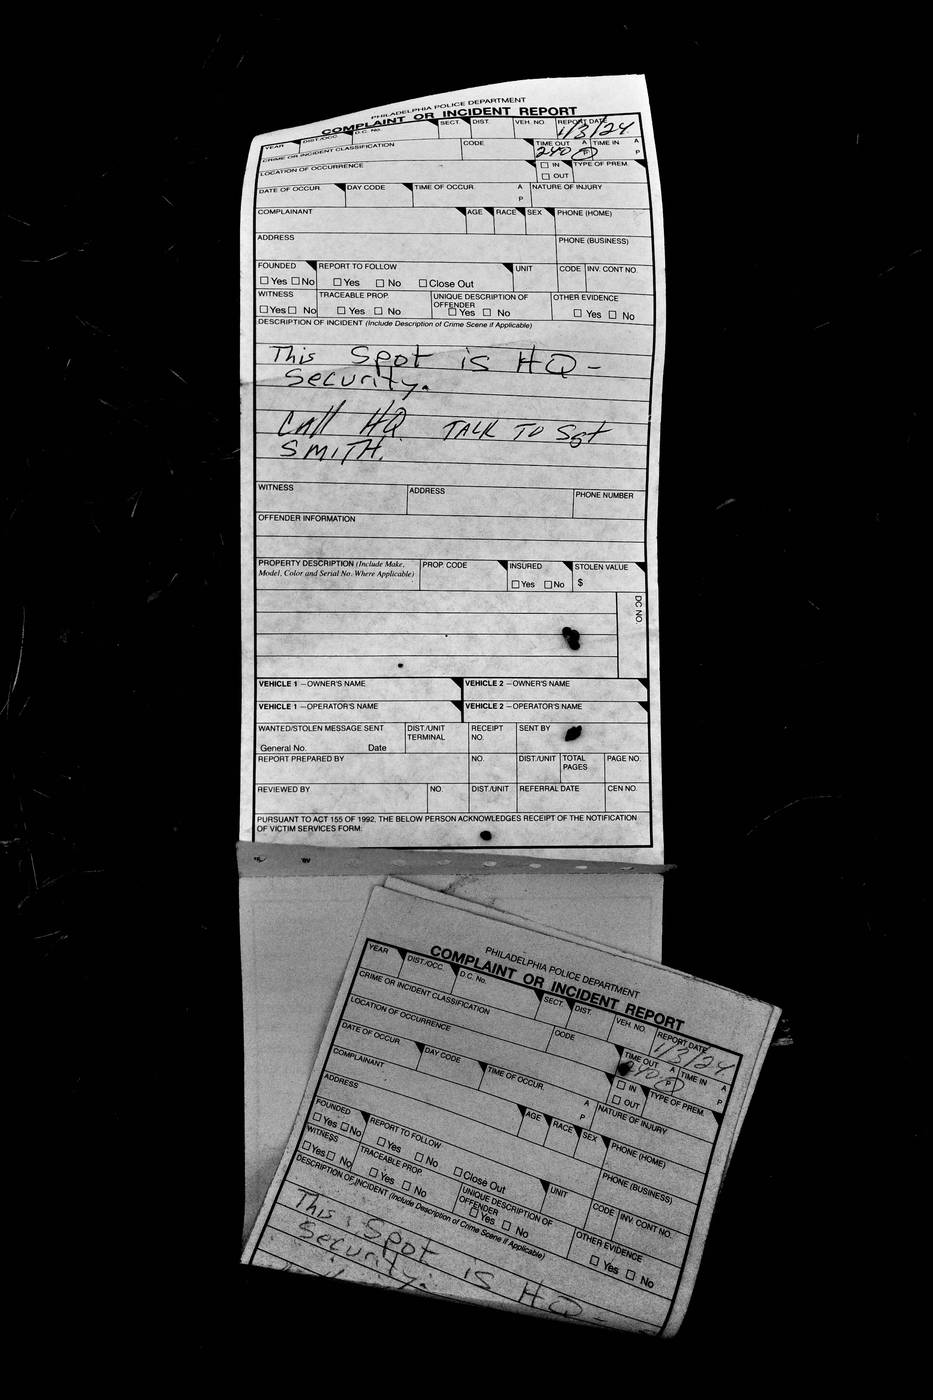 PHILADELPHIA POLICE DEPARTMENT
COMPLAINT OR INCIDENT REPORT
YEAR DIST./OCC. D.C. No. SECT. DIST. VEH. NO. REPORT DATE 1/3/24
CRIME OR INCIDENT CLASSIFICATION CODE TIME OUT 240 A P TIME IN A P
LOCATION OF OCCURRENCE IN OUT TYPE OF PREM.
DATE OF OCCUR. DAY CODE TIME OF OCCUR. A P NATURE OF INJURY
COMPLAINANT AGE RACE SEX PHONE (HOME)
ADDRESS PHONE (BUSINESS)
FOUNDED REPORT TO FOLLOW UNIT CODE INV. CONT NO.
Yes No Yes No Close Out
WITNESS TRACEABLE PROP. UNIQUE DESCRIPTION OF OFFENDER OTHER EVIDENCE
Yes No Yes No Yes No Yes No
DESCRIPTION OF INCIDENT (Include Description of Crime Scene if Applicable)
This Spot is HQ-
Security.
Call HQ. TALK TO Sgt
SMITH.
WITNESS ADDRESS PHONE NUMBER
OFFENDER INFORMATION
PROPERTY DESCRIPTION (Include Make, PROP. CODE INSURED STOLEN VALUE
Model, Color and Serial No. Where Applicable) Yes No $
DC NO.
VEHICLE 1 —OWNER'S NAME VEHICLE 2 —OWNER'S NAME
VEHICLE 1 —OPERATOR'S NAME VEHICLE 2 —OPERATOR'S NAME
WANTED/STOLEN MESSAGE SENT DIST./UNIT TERMINAL RECEIPT NO. SENT BY
General No. Date
REPORT PREPARED BY NO. DIST./UNIT TOTAL PAGES PAGE NO.
REVIEWED BY NO. DIST./UNIT REFERRAL DATE CEN NO.
PURSUANT TO ACT 155 OF 1992, THE BELOW PERSON ACKNOWLEDGES RECEIPT OF THE NOTIFICATION
OF VICTIM SERVICES FORM:
PHILADELPHIA POLICE DEPARTMENT
COMPLAINT OR INCIDENT REPORT
YEAR DIST./OCC. D.C. No. SECT. DIST. VEH. NO. REPORT DATE 1/3/24
CRIME OR INCIDENT CLASSIFICATION CODE TIME OUT 240 A P TIME IN A P
LOCATION OF OCCURRENCE IN OUT TYPE OF PREM.
DATE OF OCCUR. DAY CODE TIME OF OCCUR. A P NATURE OF INJURY
COMPLAINANT AGE RACE SEX PHONE (HOME)
ADDRESS PHONE (BUSINESS)
FOUNDED REPORT TO FOLLOW UNIT CODE INV. CONT NO.
Yes No Yes No Close Out
WITNESS TRACEABLE PROP. UNIQUE DESCRIPTION OF OFFENDER OTHER EVIDENCE
Yes No Yes No Yes No Yes No
DESCRIPTION OF INCIDENT (Include Description of Crime Scene if Applicable)
This Spot is HQ-
Security.